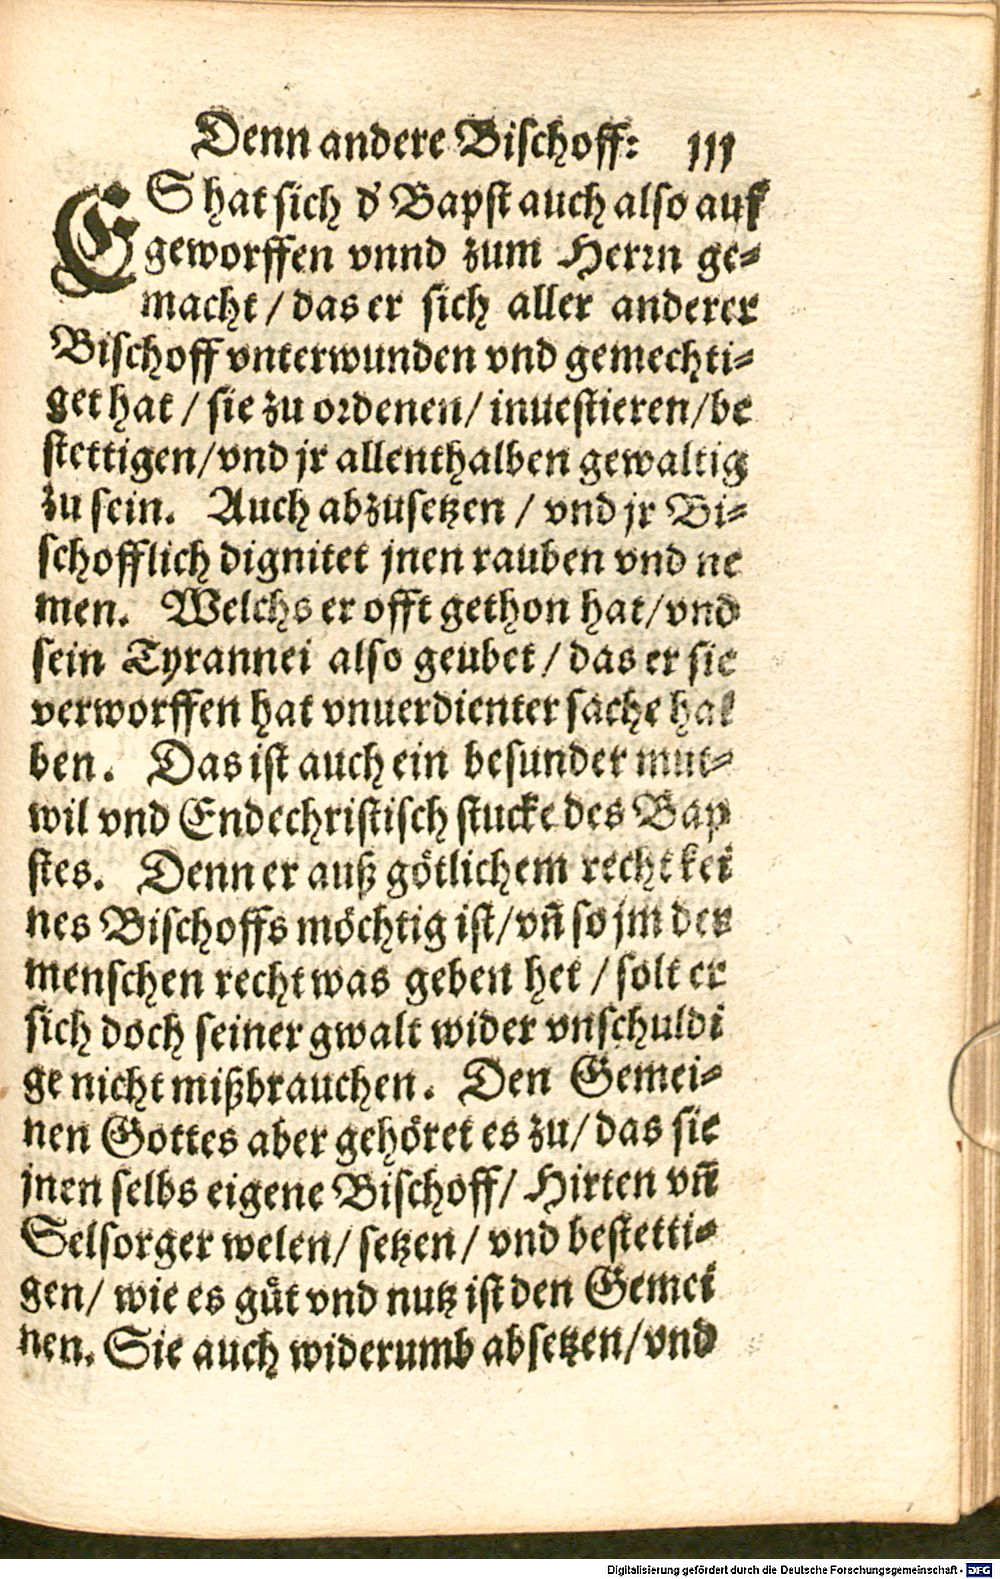 Denn andere Bischoff: 111
ES hat sich d' Bapst auch also auf
geworffen vnnd zum Herrn ge-
macht / das er sich aller anderer
Bischoff vnterwunden vnd gemechti-
get hat / sie zu ordenen / inuestieren / be
stettigen / vnd jr allenthalben gewaltig
zu sein. Auch abzusetzen / vnd jr Bi-
schofflich dignitet jnen rauben vnd ne
men. Welchs er offt gethon hat / vnd
sein Tyrannei also geubet / das er sie
verworffen hat vnuerdienter sache hal
ben. Das ist auch ein besunder mut-
wil vnd Endechristisch stucke des Bap
stes. Denn er auß götlichem recht kei
nes Bischoffs möchtig ist / vn̄ so jm der
menschen recht was geben het / solt er
sich doch seiner gwalt wider vnschuldi
ge nicht mißbrauchen. Den Gemei-
nen Gottes aber gehöret es zu / das sie
jnen selbs eigene Bischoff / Hirten vn̄
Selsorger welen / setzen / vnd bestetti-
gen / wie es gůt vnd nutz ist den Gemei
nen. Sie auch widerumb absetzen / vnd
Digitalisierung gefördert durch die Deutsche Forschungsgemeinschaft - DFG